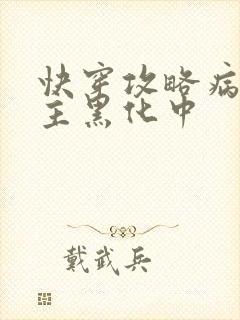 快穿攻略病
主黑化中
戴武兵